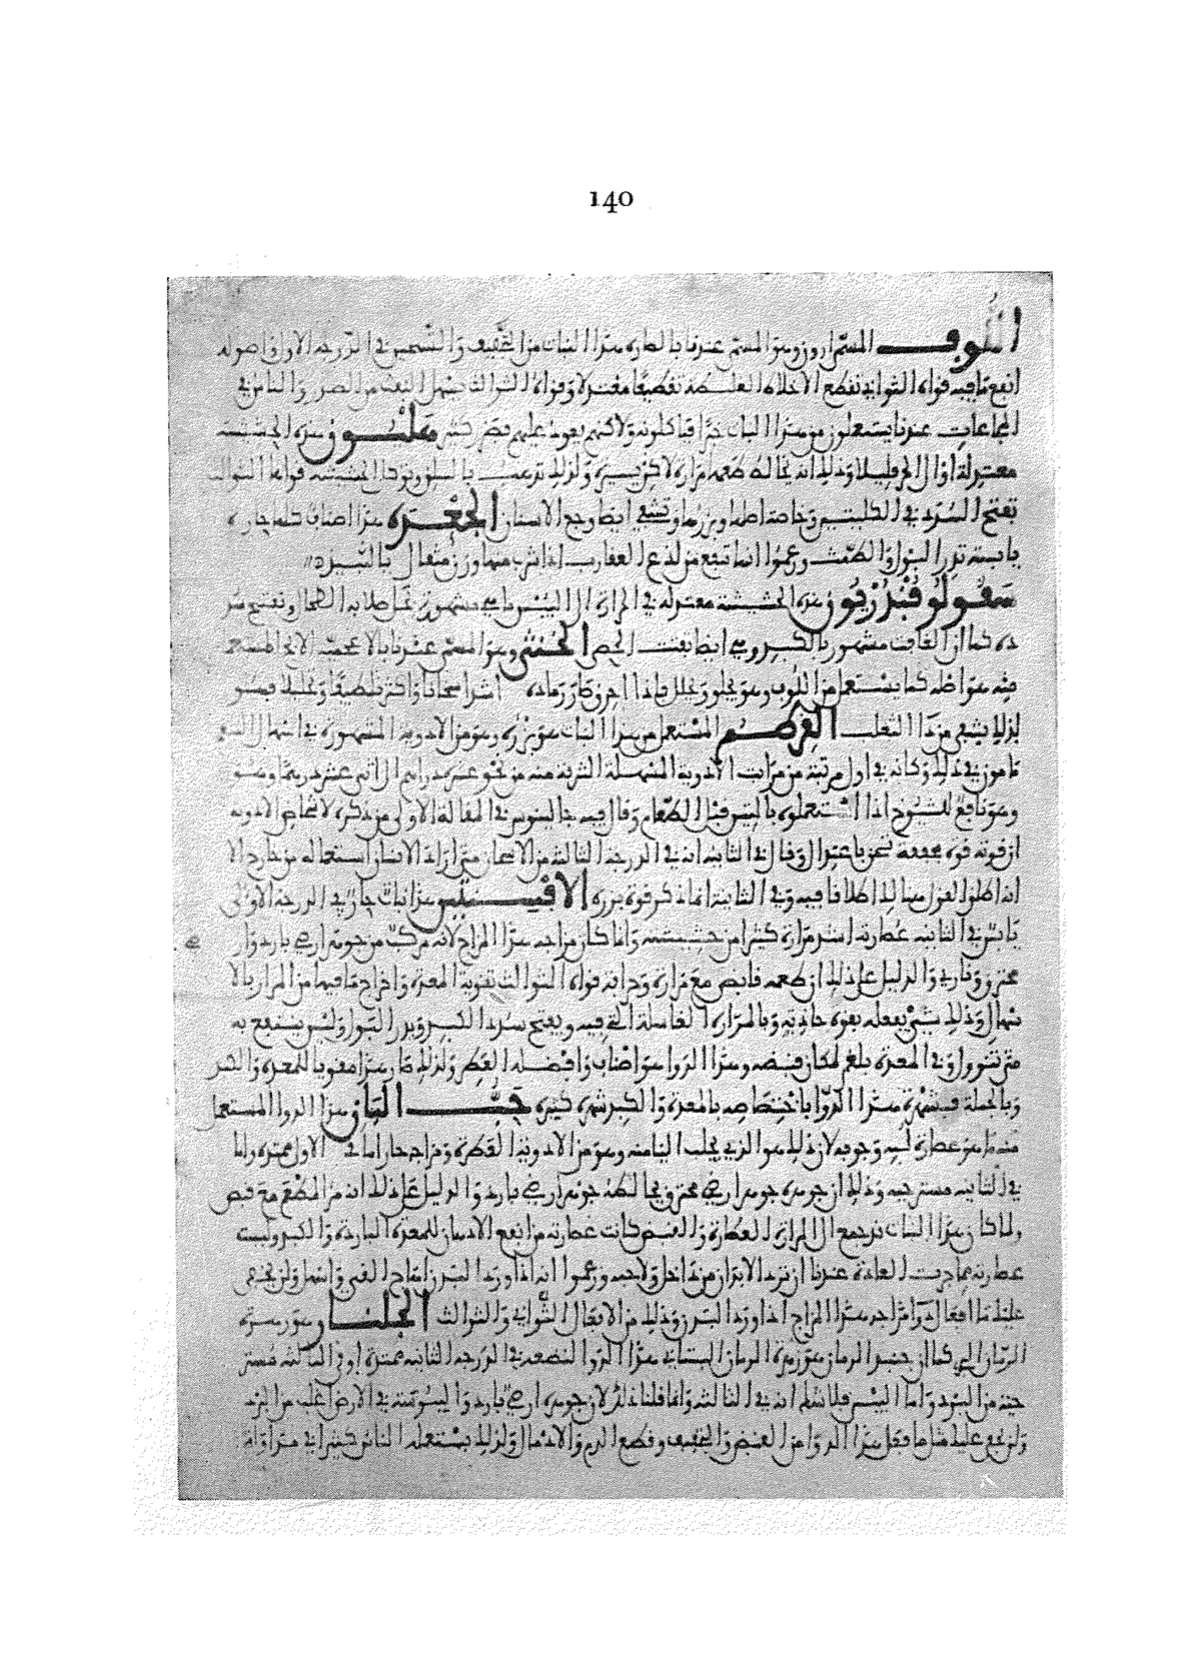 140
اللوف المسمى ارون وهو المسمى عندنا بالصارة هذا النبات من التجفيف والتسخين في الدرجة الاولى واصوله
انفع ما فيه قواه الثواني تقطع الاخلاط الغليظة تقطيعا معتدلا وقواه الثوالث تسهل النفث من الصدر والناس في
المجاعات عندنا يستعملون من هذا النبات خبزا فياكلونه ولاكنهم يعود عليهم بضرر كثير هليون هذه الحشيشة
معتدلة او الى الحر قليلا وذلك انه يخالط طعمه مرارة لاكن يسيرة ولذلك
تفتح السدد في الكليتين وخاصة اصلها وبزرها وتشفي ايضا وجع الاسنان الجعدة هذا اصناف كلها حارة
يابسة تدر البول والطمث وزعموا انها تنفع من لذع العقارب اذا شرب منها وزن مثقال بالنبيذ
سقولوقندريون هذه الحشيشة معتدلة في الحرارة الى اليبس ما هي مشهورة
كما ان الغافت مشهور بالكبد وهي ايضا تفتت الحصى الخنثى وهو المسمى عندنا بالاعجمية
منه هو اصله كما يستعمل من اللوف وهو يجلو ويحلل فاذا احرق صار رماده اشد اسخانا واكثر تلطيفا وتحليلا فهو
لذلك يشفي من داء الثعلب القرطم المستعمل من هذا النبات هو بزره وهو من الادوية المشهورة في اسهال البلغم
مامون في ذلك وكانه في اول مرتبة من مراتب الادوية المسهلة الشربة منه من نحو عشرة دراهم الى اثني عشر درهما وهو
وهو نافع للشيوخ اذا استعملوه بالتين قبل الطعام وقال فيه جالينوس في المقالة الاولى من ذكره لاشخاص الادوية
ان قوته قوة مجففة تسخن باعتدال وقال في الثانية انه في الدرجة الثالثة من الاسخان متى اراد الانسان استعماله من خارج
انه اطلق القول هنالك اطلاقا فيه وفي الثانية انما ذكر قوة بزره الافسنتين هذا نبات حار في الدرجة الاولى
يابس في الثانية عصارته اشد مرارة كثيرا من حشيشته وانما كان مزاجه هذا المزاج لانه مركب من جوهر ارضي بارد وارضي
محترق وناري والدليل على ذلك ان طعمه قابض مع مرارة وحرافة قواه الثوالث تقوية المعدة واخراج ما فيها من المرار بالا
سهال وذلك شيء يفعله بقوة جاذبة وبالمرارة الغاسلة التي فيه ويفتح سدد الكبد ويدر البول وليس ينتفع به
متى تنوول وفي المعدة بلغم لمكان قبضه وهذا الدواء هو اصناف وافضله العطر ولذلك صار هذا مقويا للمعدة والكبد
وبالجملة فشهرة هذا الدواء باختصاصه بالمعدة والكبد شهرة كثيرة حب البان هذا الدواء المستعمل
منه ما هو عصارة لبه وجوفه لان ذلك هو الذي يجلب الينا منه وهو من الادوية العطرة ومزاجه حار اما في الاولى ممتدة واما
في الثانية مسترخية وذلك ان جوهره جوهر ارضي محترق ويخالطه جوهر ارضي بارد والدليل على ذلك انه مر المطعم مع قبض
ولما كان هذا النبات قد جمع الى المرارة العطارة والقبض كانت عصارته من انفع الادهان للمعدة الباردة والكبد وليست
عصارته مما جرت العادة عندنا ان ترد الابدان من داخل ولا حبه وزعموا انه اذا ورد البدن اهاج القيء واسهل ولن يخفى
عليك ما افعال دواء مزاجه هذا المزاج اذا ورد البدن وذلك من الافعال الثواني والثوالث الجلنار وهو زهرة
الرمان البري كما ان جنبد الرمان هو زهرة الرمان البستاني هذا الدواء لنضعه في الدرجة الثانية ممتدة او في الثالثة مستر
خية من البرد واما اليبس فلا شك انه في الثالثة وانما قلنا ذلك لان جوهره ارضي بارد واليبوسة في الارض اغلب من البرد
ولن يخفى عليك مثل ما فعل هذا الدواء من القبض والتجفيف وقطع الدم والادمال ولذلك يستعمله الناس كثيرا في مداواة